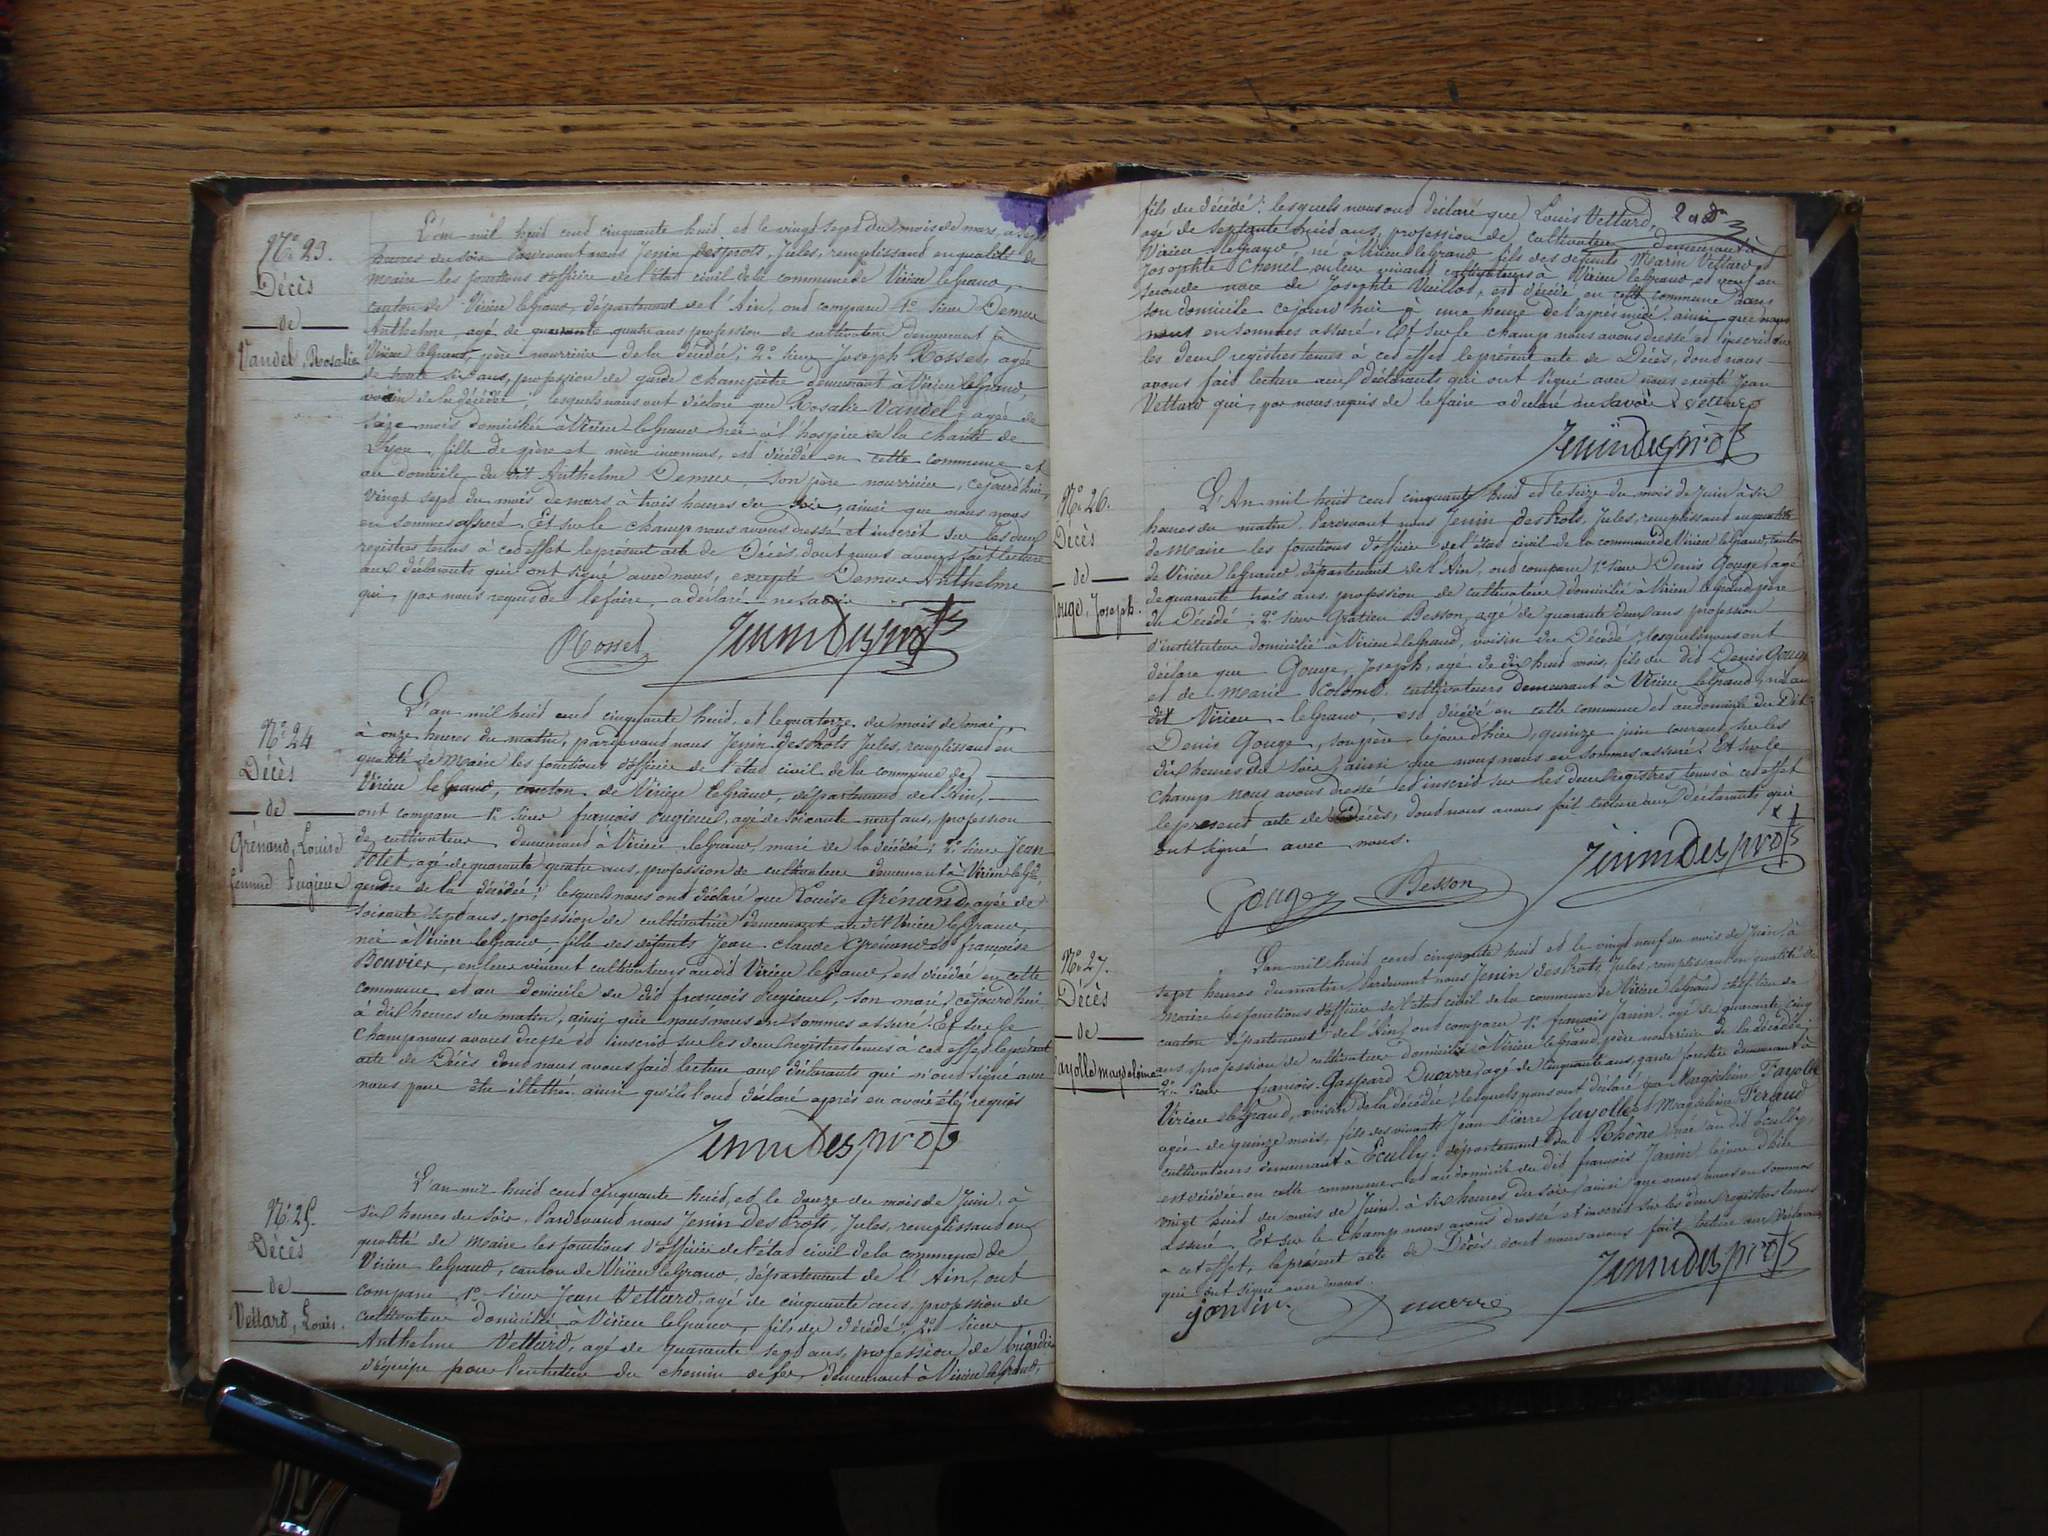 N° 23.
Décès
de
Vandel, Rosalie
L'an mil huit cent cinquante huit, et le vingt sept du mois de mars, à sept
heures du soir Pardevant nous Jenin desprots, Jules, remplissant en qualité de
maire les fonctions d'officier de l'état civil de la commune de Virieu le Grand,
canton de Virieu le Grand, département de l'Ain, ont comparu 1° sieur Demeur
Anthelme, agé de quarante quatre ans profession de cultivateur demeurant à
Virieu le Grand, père nourricier de la décédée; 2° sieur Joseph Rosset, agé
de trente six ans, profession de garde champêtre demeurant à Virieu le Grand,
voisin de la décédée; lesquels nous ont déclaré que Rosalie Vandel, agée de
seize mois domiciliée à Virieu le Grand née à l'hospice de la charité de
Lyon, fille de père et mère inconnus, est décédée en cette commune et
au domicile du dit Anthelme Demeur, son père nourricier, cejourd'hui,
vingt sept du mois de mars à trois heures du soir, ainsi que nous nous
en sommes assuré. Et sur le champ nous avons dressé et inscrit sur les deux
registres tenus à cet effet le présent acte de Décès, dont nous avons fait lecture
aux déclarants qui ont signé avec nous, excepté Demeur Anthelme
qui, par nous requis de le faire, a déclaré ne savoir
Rosset Jenin Desprots
N° 24
Décès
de
Grénand, Louise
femme Pugieux
L'an mil huit cent cinquante huit, et le quatorze du mois de mai,
à onze heures du matin, pardevant nous Jenin desprots Jules, remplissant en
qualité de Maire les fonctions d'officier de l'état civil de la commune de
Virieu le Grand, canton de Virieu le Grand, département de l'Ain,
ont comparu 1° sieur françois Pugieux, agé de soixante neuf ans, profession
de cultivateur demeurant à Virieu le Grand, mari de la décédée; 2° sieur Jean
agé de quarante quatre ans, profession de cultivateur demeurant à Virieu le Gd,
gendre de la décédée; lesquels nous ont déclaré que Louise Grénand, agée de
soixante sept ans, profession de cultivatrice demeurant au dit Virieu le Grand,
née à Virieu le Grand, fille des défunts Jean-claude Grénand et françoise
Bouvier, en leur vivant cultivateurs au dit Virieu le Grand, est décédée en cette
commune et au domicile du dit françois Pugieux, son mari, cejourd'hui
à dix heures du matin, ainsi que nous nous en sommes assuré. Et sur le
champ nous avons dressé et inscrit sur les deux registres tenus à cet effet le présent
acte de Décès dont nous avons fait lecture aux déclarants qui n'ont signé avec
nous pour être illettrés ainsi qu'ils l'ont déclaré après en avoir été requis
Jenin Desprots
N° 25.
Décès
de
Vettard, Louis.
L'an mil huit cent cinquante huit, et le douze du mois de Juin, à
six heures du soir. Pardevant nous Jenin des Prots, Jules, remplissant en
qualité de Maire les fonctions d'officier de l'état civil de la commune de
Virieu le Grand, canton de Virieu le Grand, département de l'Ain, ont
comparu 1° sieur Jean Vettard, agé de cinquante ans, profession de
cultivateur domicilié à Virieu le Grand, fils du décédé; 2° sieur
Anthelme Vettard, agé de quarante sept ans, profession de brigadier
d'équipe pour l'entretien du chemin de fer, demeurant à Virieu le Grand,
fils du décédé; lesquels nous ont déclaré que Louis Vettard,
agé de septante huit ans, profession de cultivateur demeurant à
Virieu le Grand, né à Virieu le Grand fils des défunts Marin Vettard et
Josephte Chenel, en leur vivant cultivateurs à Virieu le Grand, et veuf en
seconde noce de Josephte Vuillot, est décédé en cette commune dans
son domicile cejourd'hui à une heure de l'après midi, ainsi que nous
nous en sommes assuré. Et sur le champ nous avons dressé et inscrit sur
les deux registres tenus à cet effet le présent acte de Décès, dont nous
avons fait lecture aux déclarants qui ont signé avec nous excepté Jean
Vettard qui, par nous requis de le faire a déclaré ne savoir Vettard
Jenin Desprots
N° 26.
Décès
de
Gouge, Joseph.
L'An mil huit cent cinquante huit et le seize du mois de Juin à six
heures du matin, Pardevant nous Jenin desprots, Jules, remplissant en qualité
de Maire les fonctions d'officier de l'état civil de la commune de Virieu le Grand, canton
de Virieu le Grand, département de l'Ain, ont comparu 1° sieur Denis Gouge, agé
de quarante trois ans, profession de cultivateur domicilié à Virieu le Grand, père
du Décédé; 2° sieur Gratien Besson, agé de quarante deux ans profession
d'instituteur domicilié à Virieu le Grand, voisin du Décédé; lesquels nous ont
déclaré que Gouge, Joseph, agé de dix huit mois, fils du dit Denis Gouge
et de Marie Colomb, cultivateurs demeurant à Virieu le Grand, né au
dit Virieu-le Grand, est décédé en cette commune et au domicile du Dit
Denis Gouge, son père, le jour d'hier, quinze juin courant, sur les
dix heures du soir, ainsi que nous nous en sommes assuré. Et sur le
champ nous avons dressé et inscrit sur les deux registres tenus à cet effet
le présent acte de Décès, dont nous avons fait lecture aux déclarants qui
ont signé avec nous.
Gouge Besson Jenin Desprots
N° 27.
Décès
de
Fayolle magdeleine
L'an mil huit cent cinquante huit et le vingt neuf du mois de Juin, à
sept heures du matin, Pardevant nous Jenin desprots, Jules, remplissant en qualité de
Maire les fonctions d'officier de l'état civil de la commune de Virieu le Grand chef-lieu de
canton département de l'Ain, ont comparu 1° françois Janin, agé de quarante cinq
ans, profession de cultivateur domicilié à Virieu le Grand, père nourricier de la décédée;
2° sieur françois-Gaspard Ducarre, agé de cinquante ans, garde forestier demeurant à
Virieu le Grand, voisin de la décédée; lesquels nous ont déclaré que Magdeleine Fayolle
agée de quinze mois, fille des vivants Jean Pierre fayolle et Magdeleine Feraud
cultivateurs demeurant à Ecully, département du Rhône, née au dit Ecully,
est décédée en cette commune et au domicile du dit françois Janin, le jour d'hier
vingt huit du mois de Juin, à six heures du soir, ainsi que nous nous en sommes
assuré. Et sur le champ nous avons dressé et inscrit sur les deux registres tenus
à cet effet, le présent acte de Décès dont nous avons fait lecture aux déclarants
qui ont signé avec nous.
janin. Ducarre Jenin Desprots